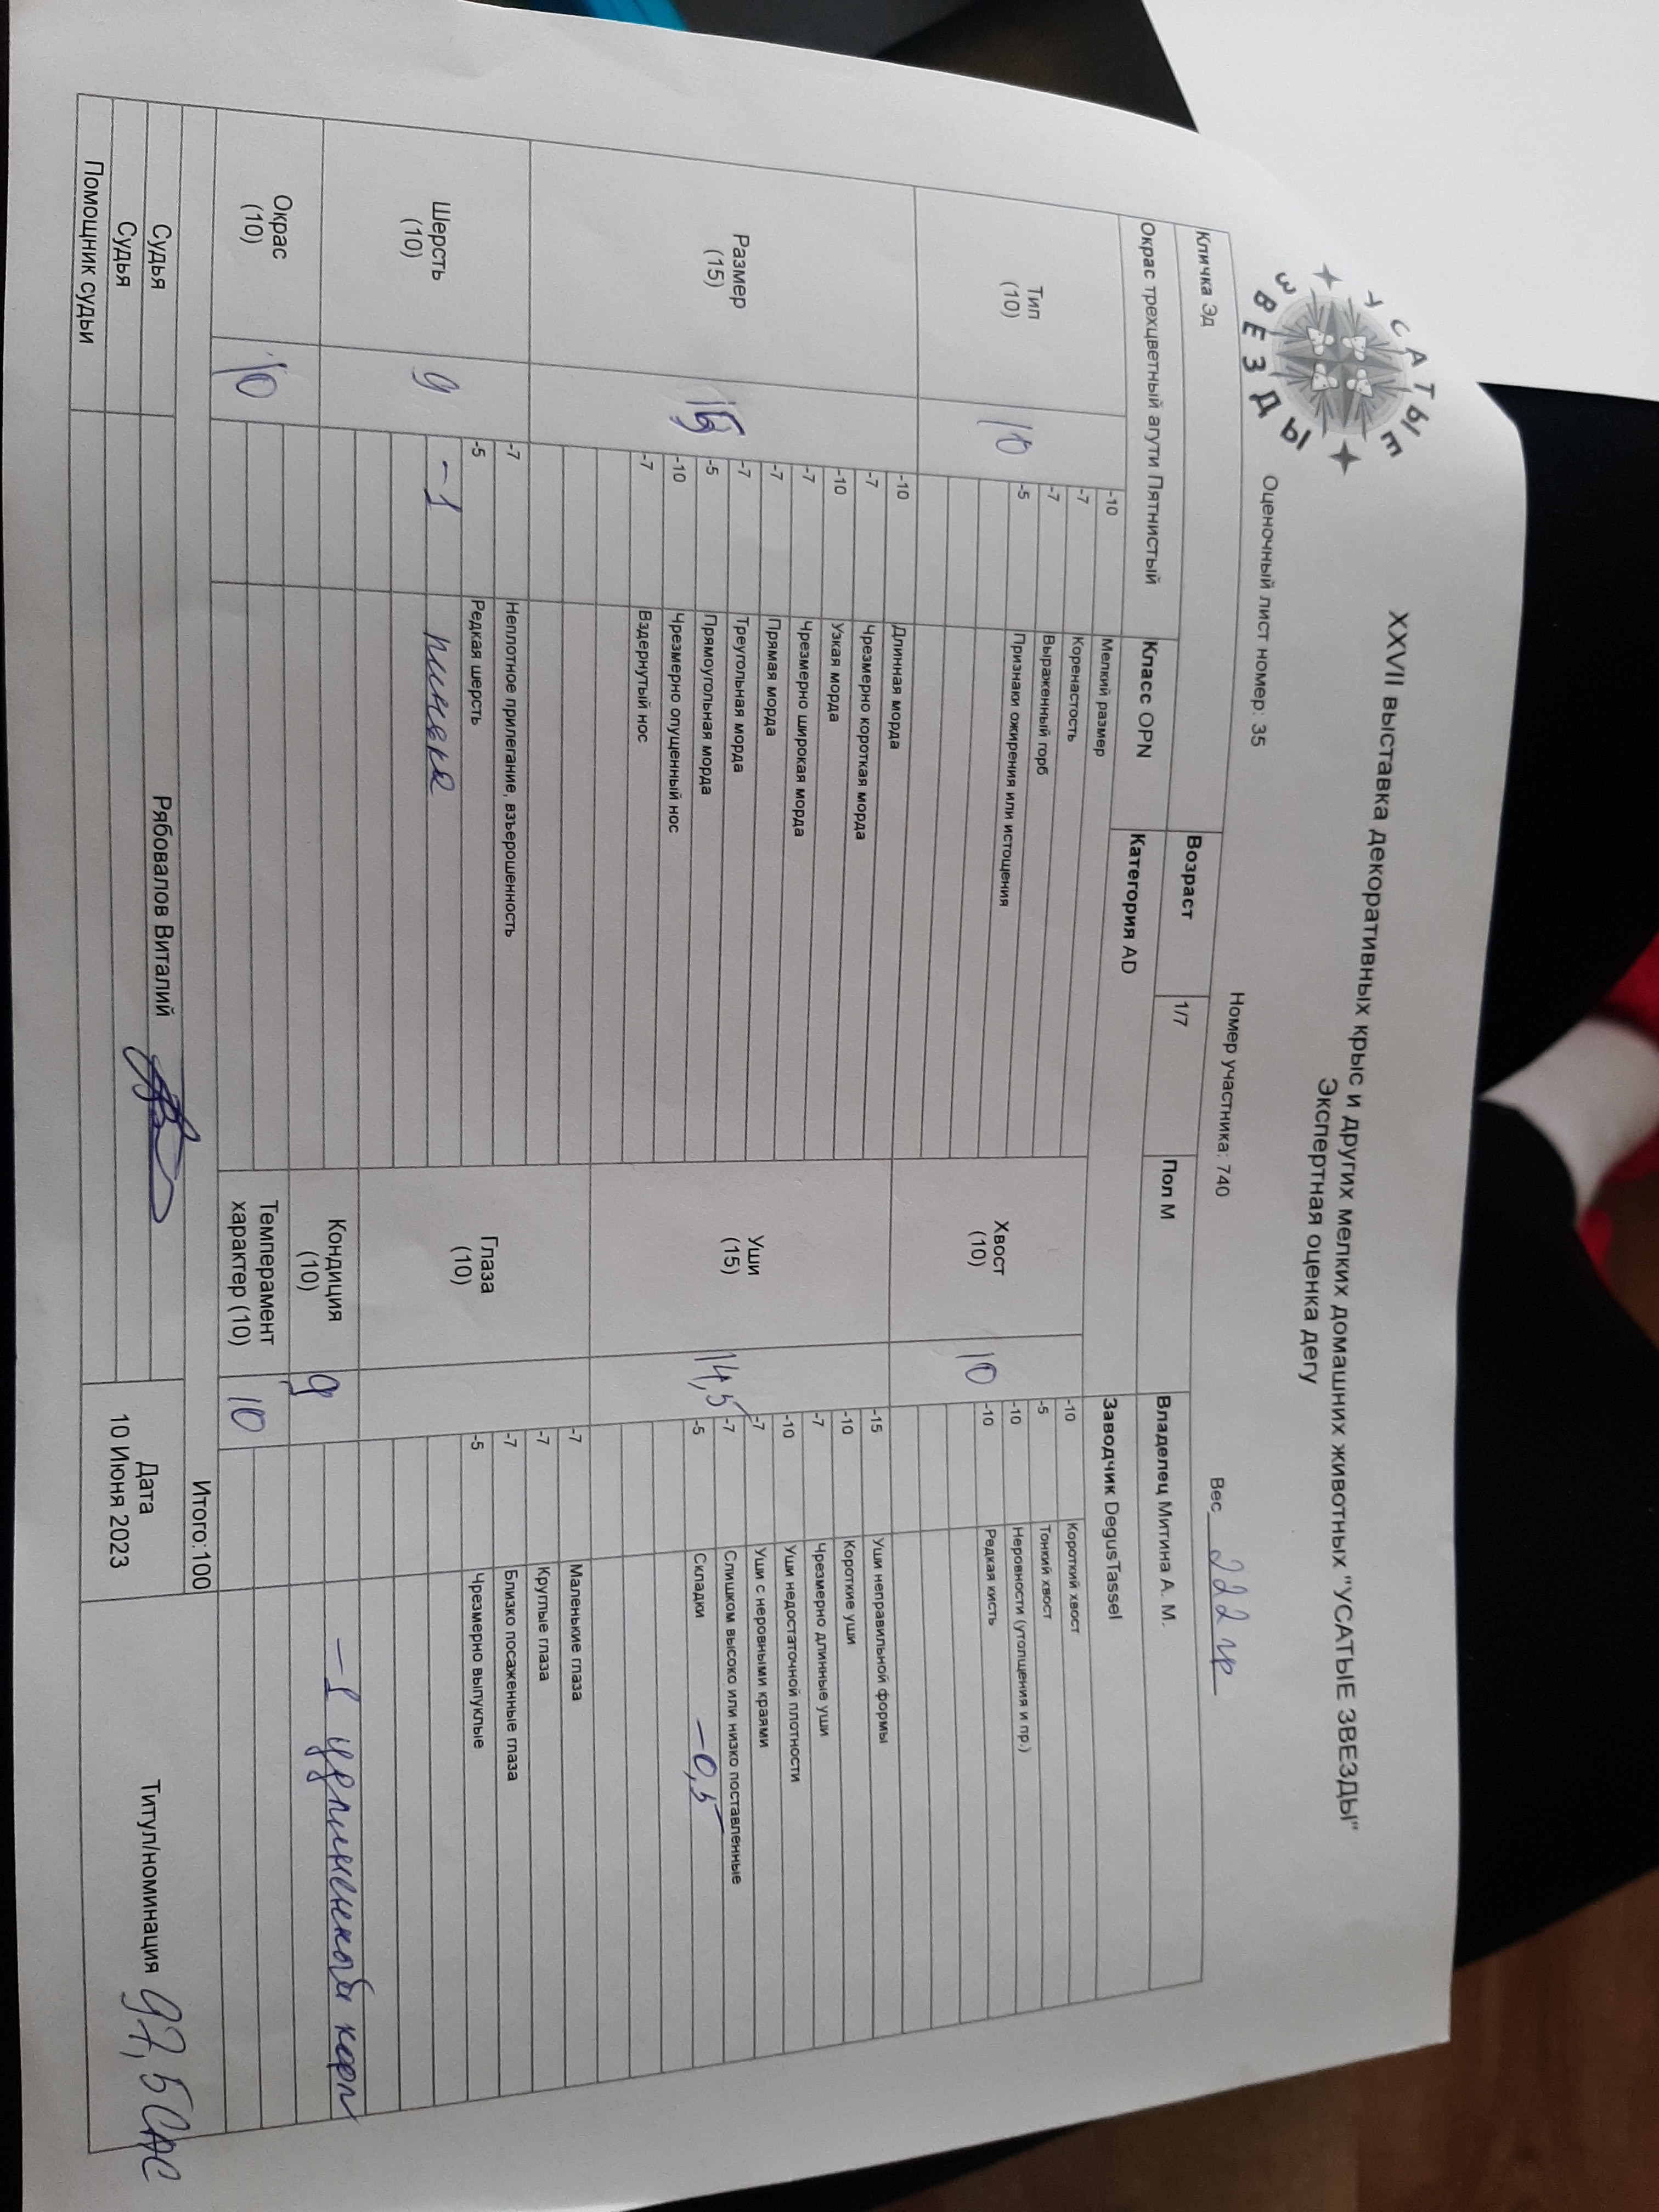 УСАТЫЕ ЗВЕЗДЫ
XXVII выставка декоративных крыс и других мелких домашних животных "УСАТЫЕ ЗВЕЗДЫ"
Экспертная оценка дегу
Оценочный лист номер: 35 Номер участника: 740 Вес 222 гр
Кличка Эд Возраст 1/7 Пол М Владелец Митина А. М.
Окрас трехцветный агути Пятнистый Класс OPN Категория AD Заводчик DegusTassel
Тип
(10)
10
-10 Мелкий размер
-7 Коренастость
-7 Выраженный горб
-5 Признаки ожирения или истощения
Хвост
(10)
10
-10 Короткий хвост
-5 Тонкий хвост
-10 Неровности (утолщения и пр.)
-10 Редкая кисть
Размер
(15)
15
-10 Длинная морда
-7 Чрезмерно короткая морда
-10 Узкая морда
-7 Чрезмерно широкая морда
-7 Прямая морда
-7 Треугольная морда
-5 Прямоугольная морда
-10 Чрезмерно опущенный нос
-7 Вздернутый нос
Уши
(15)
14,5
-15 Уши неправильной формы
-10 Короткие уши
-7 Чрезмерно длинные уши
-10 Уши недостаточной плотности
-7 Уши с неровными краями
-7 Слишком высоко или низко поставленные
-5 Складки -0,5
Шерсть
(10)
9
-7 Неплотное прилегание, взъерошенность
-5 Редкая шерсть
-1 линька
Глаза
(10)
-7 Маленькие глаза
-7 Круглые глаза
-7 Близко посаженные глаза
-5 Чрезмерно выпуклые
Окрас
(10)
10
Кондиция
(10)
9
-1 удлиненный корп
Темперамент
характер (10)
10
Итого:100
Судья Рябовалов Виталий
Судья
Помощник судьи
Дата
10 Июня 2023
Титул/номинация 97,5 CAC